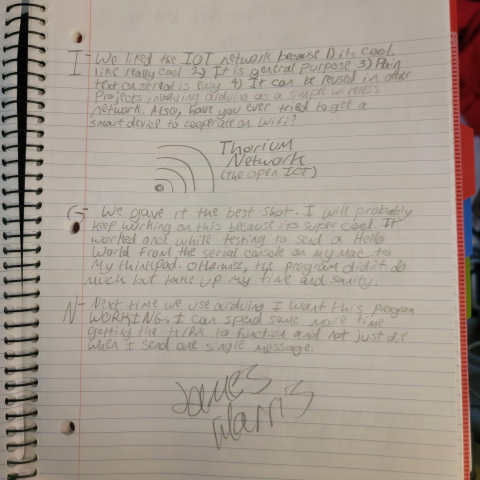 I - We liked the IOT network because 1) its cool,
like really cool 2) It is general purpose 3) Plain
text on serial is easy 4) It can be reused in other
projects involving arduino as a simple wireless
network. Also, have you ever tried to get a
smart device to cooperate on WiFi?
Thorium
Network
(the open IOT)
G - We gave it the best shot. I will probably
keep working on this because its super cool It
worked once while testing to send a Hello
World from the serial console on my Mac to
my thinkpad. Otherwise, the program didn't do
much but take up my time and sanity.
N - Next time we use arduino I want this program
WORKING. I can spend some more time
getting the tx/rx to function and not just die
when I send one single message.
James
Harris